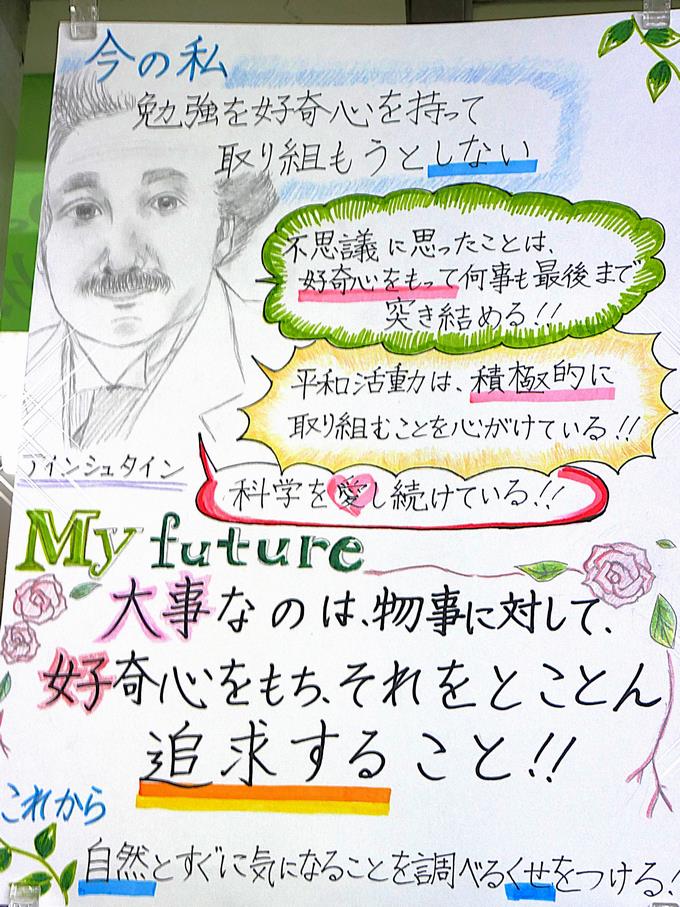 今の私
勉強を好奇心を持って
取り組もうとしない
不思議に思ったことは、
好奇心をもって何事も最後まで
突き結める!!
平和活動は、積極的に
取り組むことを心がけている!!
アインシュタイン
科学を愛し続けている!!
My future
大事なのは、物事に対して、
好奇心をもち、それをとことん
追求すること!!
これから
自然とすぐに気になることを調べるくせをつける!